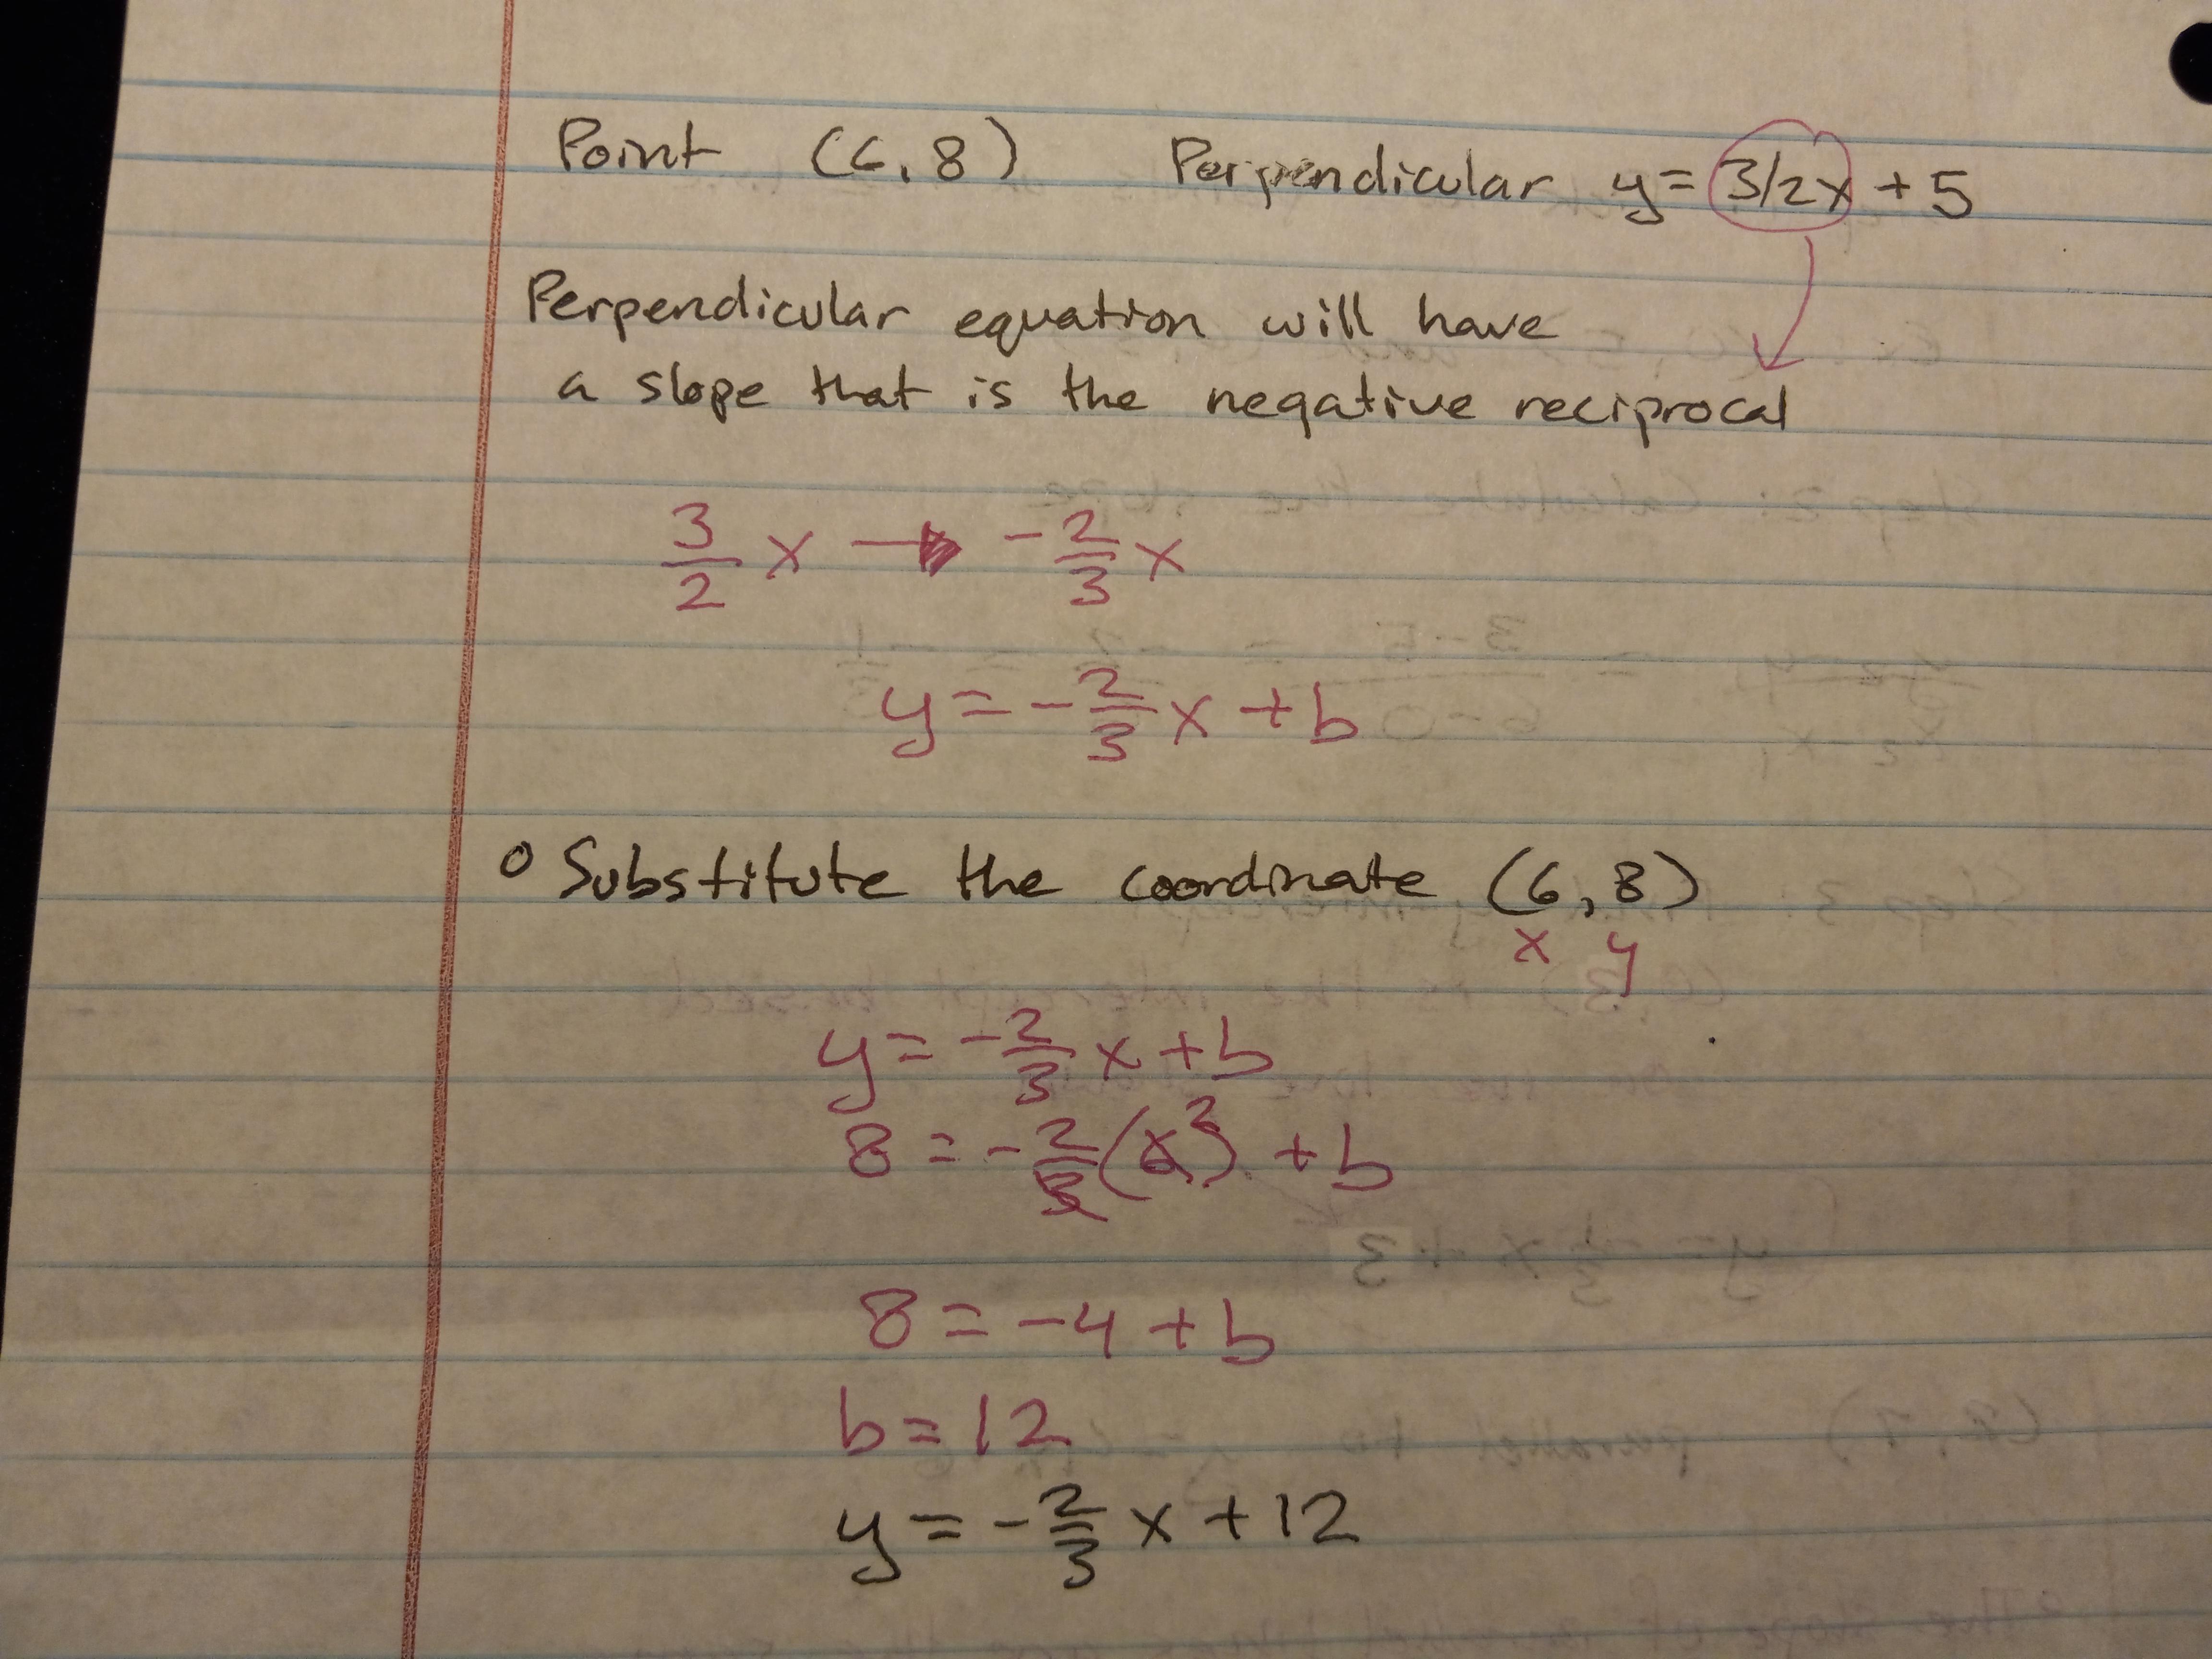 Point (6,8) Perpendicular y = 3/2x + 5
Perpendicular equation will have
a slope that is the negative reciprocal
3/2 x → -2/3 x
y = -2/3 x + b
o Substitute the coordinate (6,8)
x y
y = -2/3 x + b
8 = -2/3 (6)2 + b
8 = -4 + b
b = 12
y = -2/3 x + 12